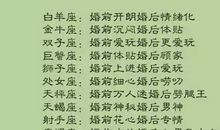 白羊座：婚前开朗婚后情绪化
金牛座：婚前沉闷婚后体贴
双子座：婚前爱玩婚后更爱玩
巨蟹座：婚前体贴婚后顾家
狮子座：婚前上进婚后爱玩
处女座：婚前细心婚后唠叨
天秤座：婚前万人迷婚后劈腿王
天蝎座：婚前神秘婚后男神
射手座：婚前花心婚后专情